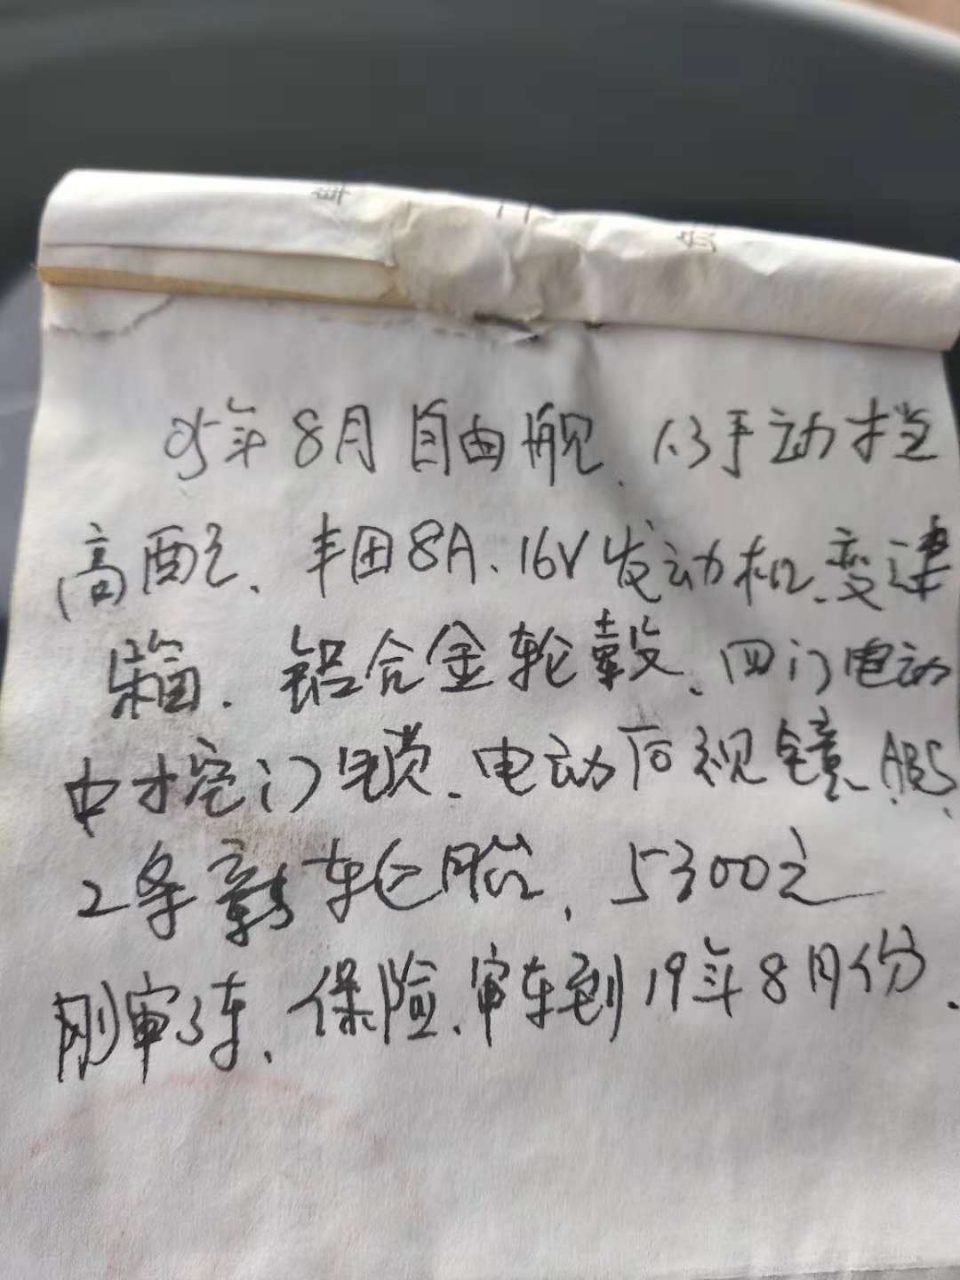 05年8月自由舰、1.3手动挡
高配、丰田8A、16V发动机、变速
箱、铝合金轮毂、四门电动
中控门锁、电动后视镜、ABS、
2条新轮胎、5300元
刚审了车、保险、审车到19年8月份、